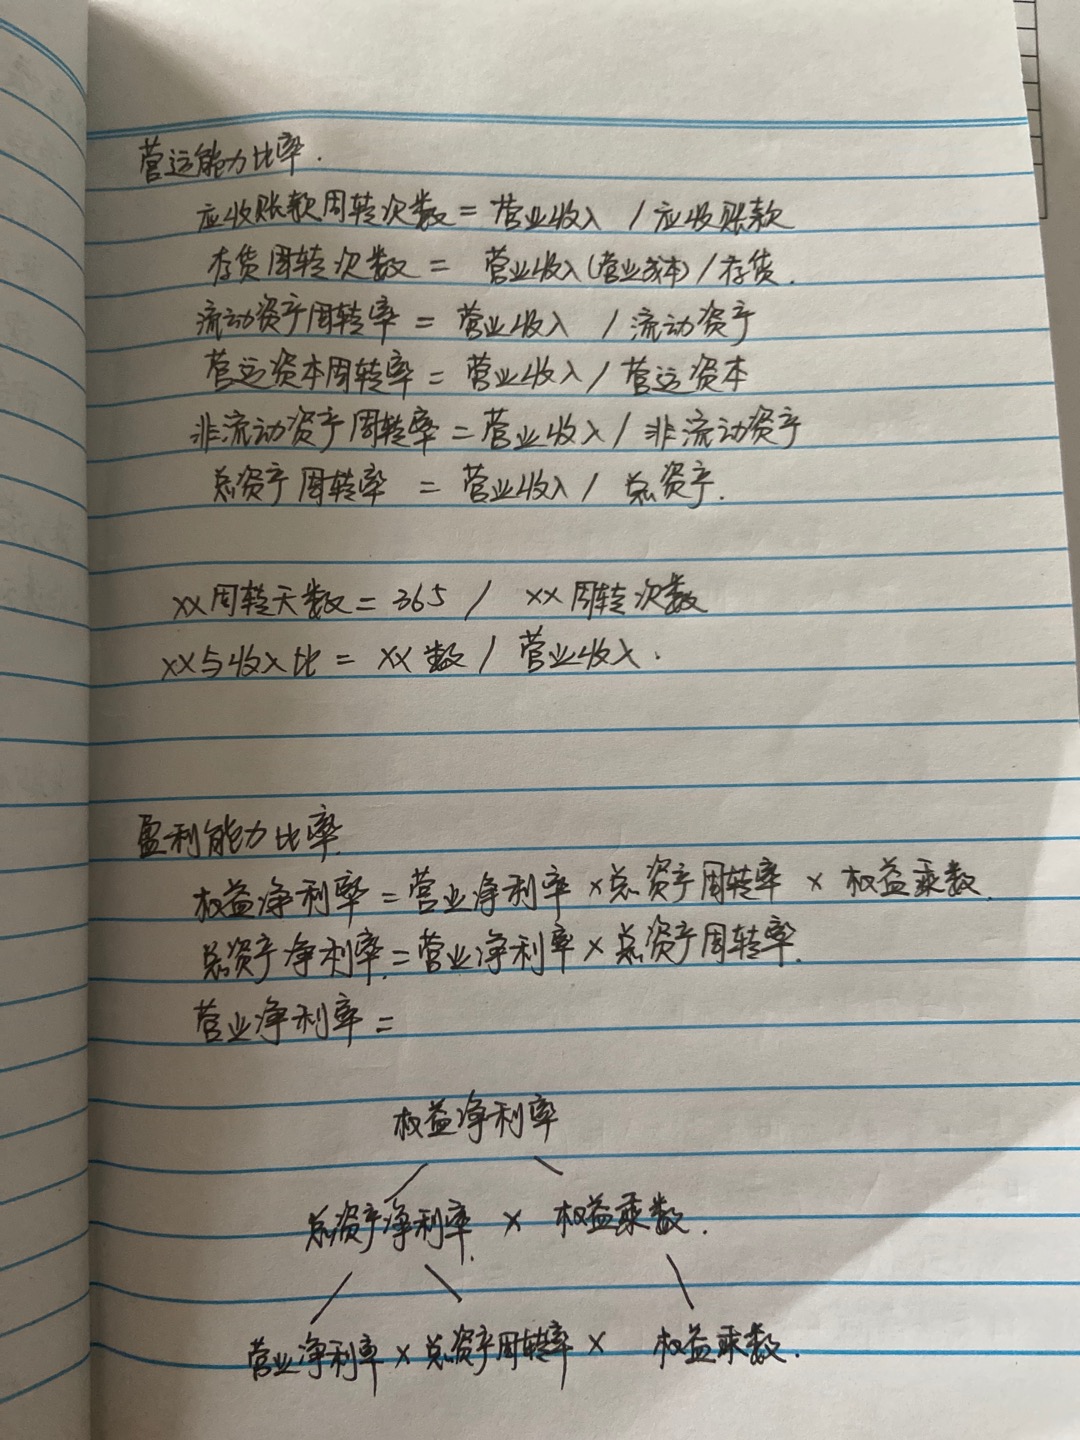 营运能力比率.
应收账款周转次数 = 营业收入 / 应收账款
存货周转次数 = 营业收入(营业成本) / 存货.
流动资产周转率 = 营业收入 / 流动资产
营运资本周转率 = 营业收入 / 营运资本
非流动资产周转率 = 营业收入 / 非流动资产
总资产周转率 = 营业收入 / 总资产.
xx周转天数 = 365 / xx周转次数
xx与收入比 = xx数 / 营业收入.
盈利能力比率.
权益净利率 = 营业净利率 × 总资产周转率 × 权益乘数.
总资产净利率. = 营业净利率 × 总资产周转率.
营业净利率 =
权益净利率
总资产净利率. × 权益乘数.
营业净利率 × 总资产周转率 × 权益乘数.